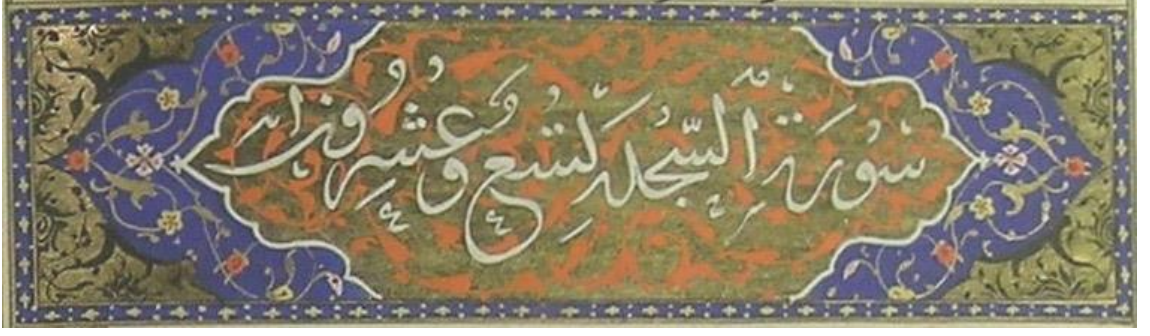 سورة السجدة تسع وعشرون اية